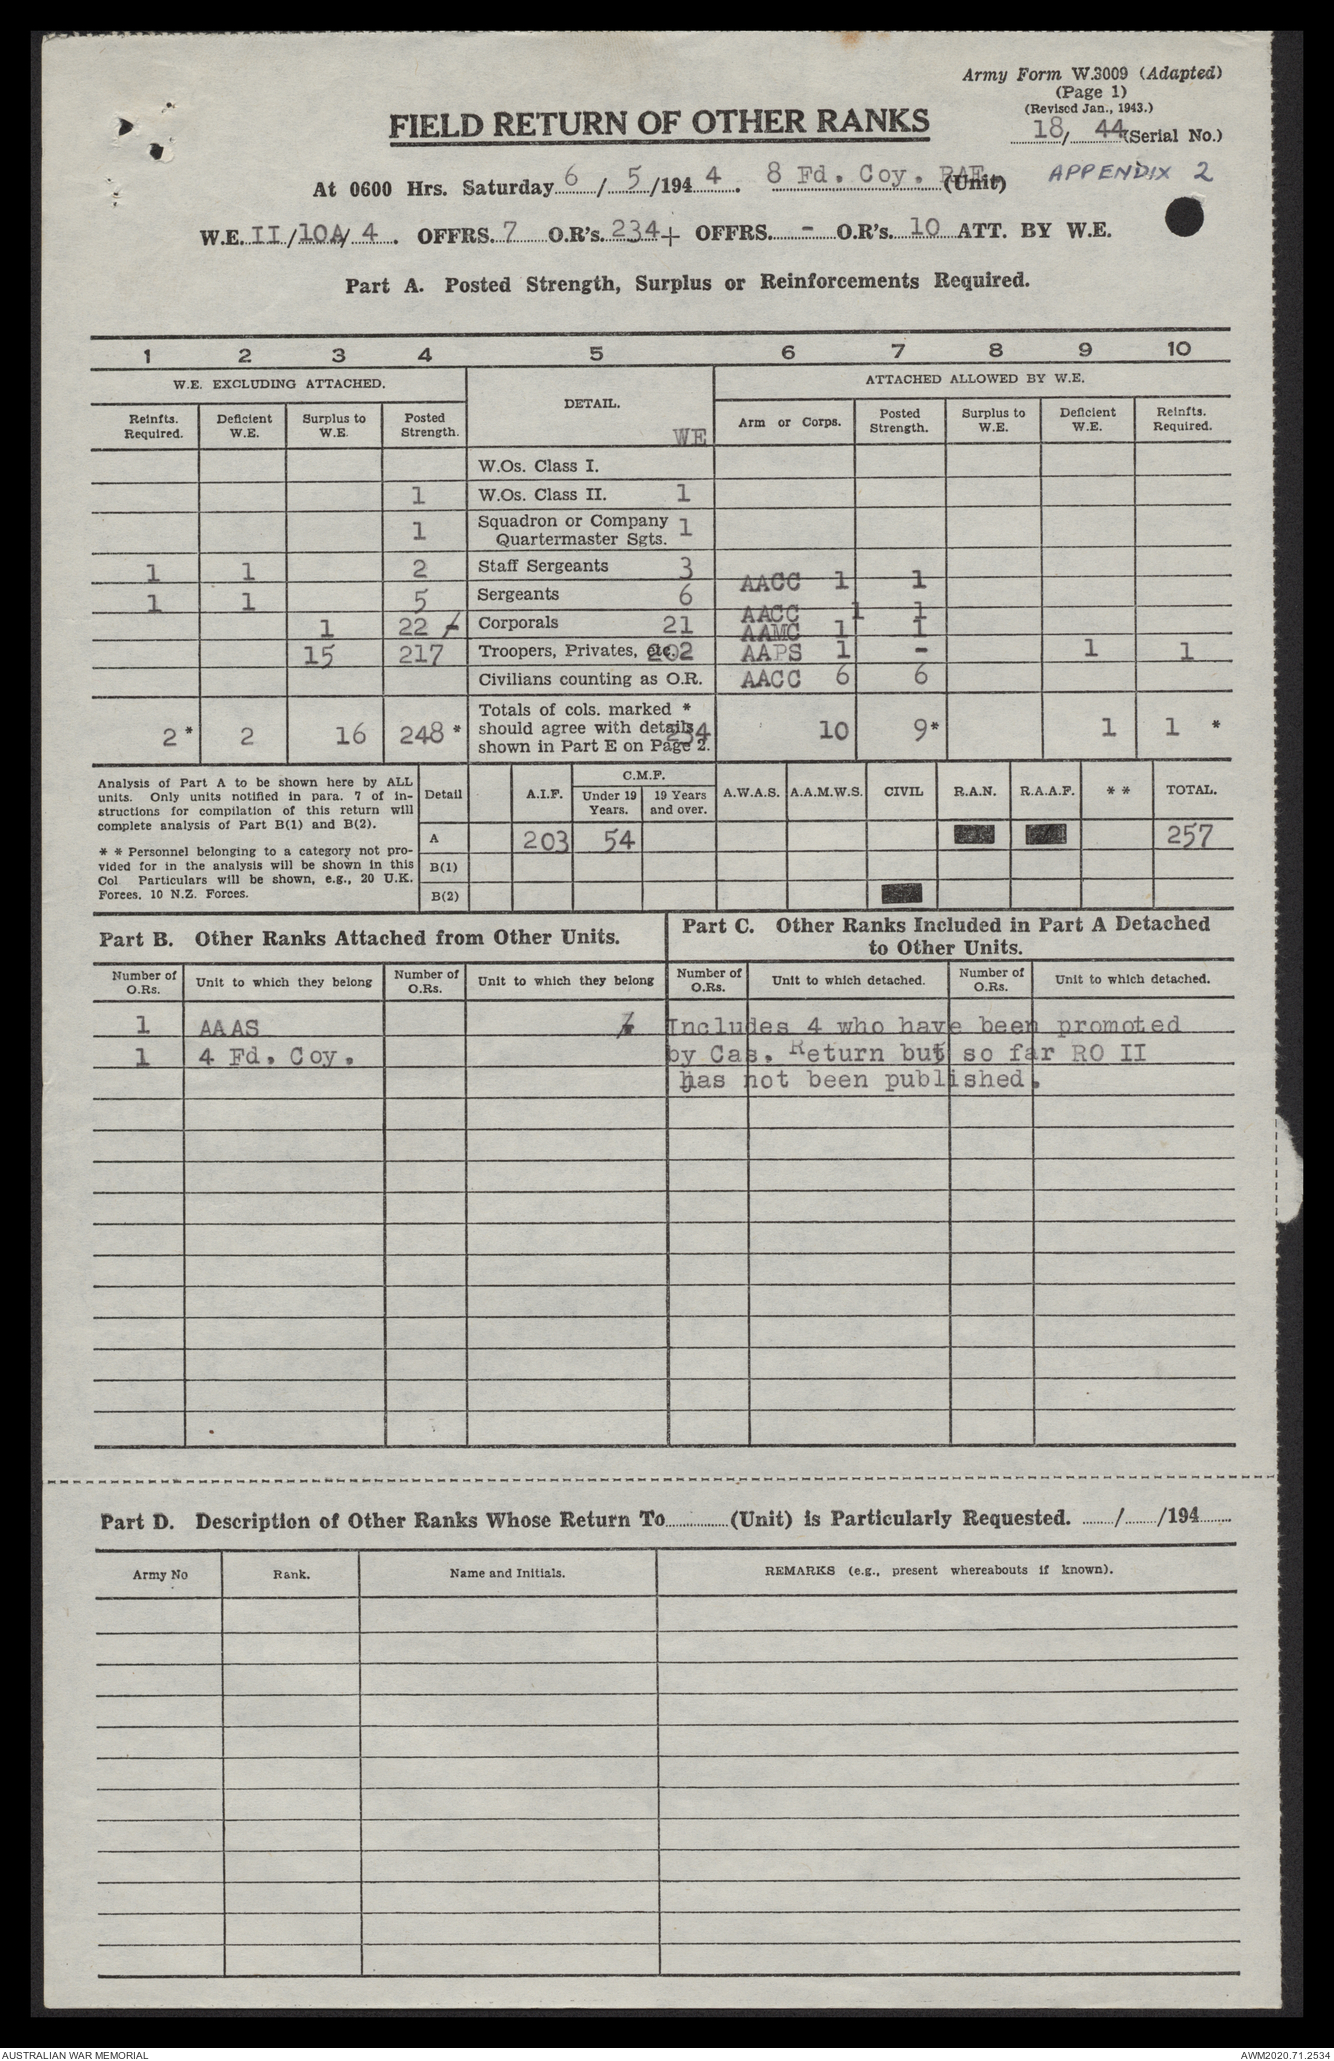 Army Form W.3009 (Adapted)
(Page 1)
(Revised Jan., 1943.)
18/ 44 (Serial No.)
FIELD RETURN OF OTHER RANKS
At 0600 Hrs. Saturday 6 / 5 /194 4 . 8 Fd. Coy. RAE. (Unit) APPENDIX 2
W.E. II /10A/ 4 . OFFRS. 7 O.R's. 234+ OFFRS. - O.R's. 10 ATT. BY W.E.
Part A. Posted Strength, Surplus or Reinforcements Required.
1 2 3 4 5 6 7 8 9 10
W.E. EXCLUDING ATTACHED. DETAIL. ATTACHED ALLOWED BY W.E.
Reinfts. Required. Deficient W.E. Surplus to W.E. Posted Strength. WE Arm or Corps. Posted Strength. Surplus to W.E. Deficient W.E. Reinfts. Required.
W.Os. Class I.
1 W.Os. Class II. 1
1 Squadron or Company Quartermaster Sgts. 1
1 1 2 Staff Sergeants 3 AACC 1 1
1 1 5 Sergeants 6 AACC 1 1
1 22 Corporals 21 AAMC 1 1
15 217 Troopers, Privates, etc. 202 AAPS 1 - 1 1
Civilians counting as O.R. AACC 6 6
2 * 2 16 248 * Totals of cols. marked * should agree with details shown in Part E on Page 2. 234 10 9* 1 1 *
Analysis of Part A to be shown here by ALL
units. Only units notified in para. 7 of in-
structions for compilation of this return will
complete analysis of Part B(1) and B(2).
* * Personnel belonging to a category not pro-
vided for in the analysis will be shown in this
Col Particulars will be shown, e.g., 20 U.K.
Forces, 10 N.Z. Forces.
Detail A.I.F. C.M.F. Under 19 Years. 19 Years and over. A.W.A.S. A.A.M.W.S. CIVIL R.A.N. R.A.A.F. * * TOTAL.
A 203 54 257
B(1)
B(2)
Part B. Other Ranks Attached from Other Units.
Part C. Other Ranks Included in Part A Detached
to Other Units.
Number of O.Rs. Unit to which they belong Number of O.Rs. Unit to which they belong Number of O.Rs. Unit to which detached. Number of O.Rs. Unit to which detached.
1 AAAS Includes 4 who have been promoted
1 4 Fd. Coy. by Cas. Return but so far RO II
has not been published.
Part D. Description of Other Ranks Whose Return To (Unit) is Particularly Requested. / /194
Army No Rank. Name and Initials. REMARKS (e.g., present whereabouts if known).
AUSTRALIAN WAR MEMORIAL AWM2020.71.2534